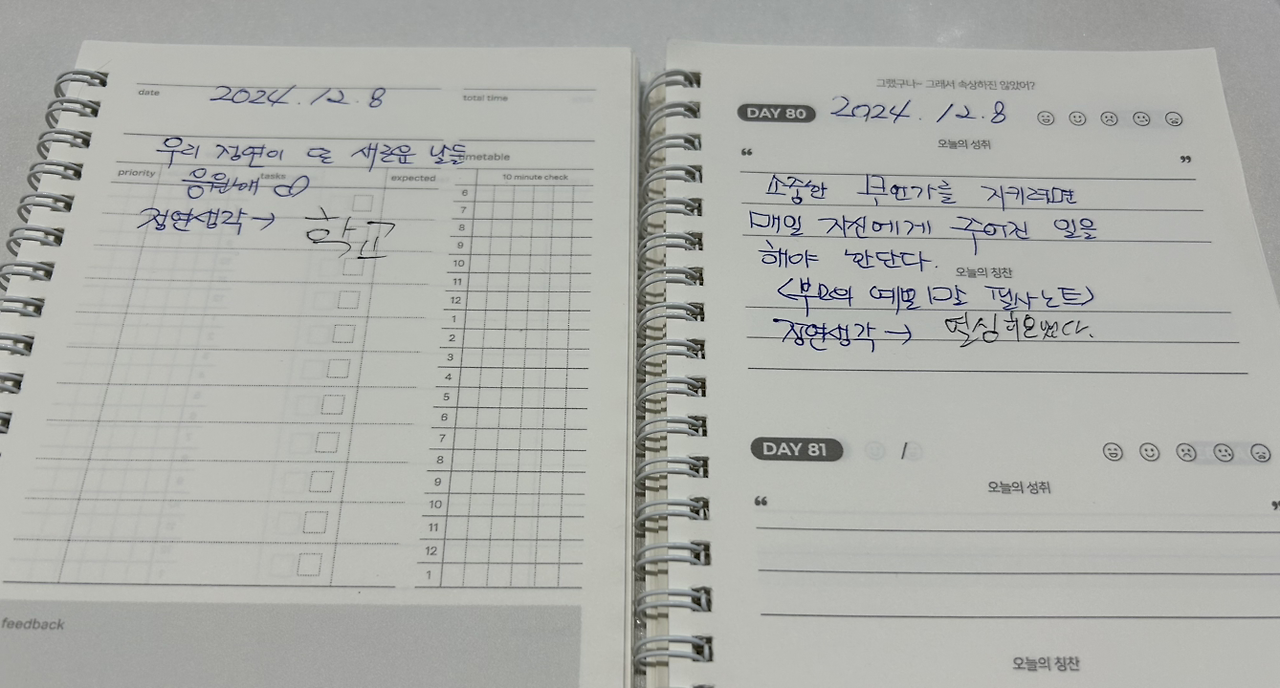 date 2024.12.8 total time
우리 정연이 또 새로운 날들 timetable
priority tasks expected 10 minute check
응원해
정연생각→ 학교
6
7
8
9
10
11
12
1
2
3
4
5
6
7
8
9
10
11
12
1
feedback
그랬구나~ 그래서 속상하진 않았어?
DAY 80 2024.12.8
오늘의 성취
“ ”
소중한 무언가를 지키려면
매일 자신에게 주어진 일을
해야 한단다.
오늘의 칭찬
<부모의 예쁜 말 필사노트>
정연생각→ 열심히
DAY 81 /
오늘의 성취
“ ”
오늘의 칭찬